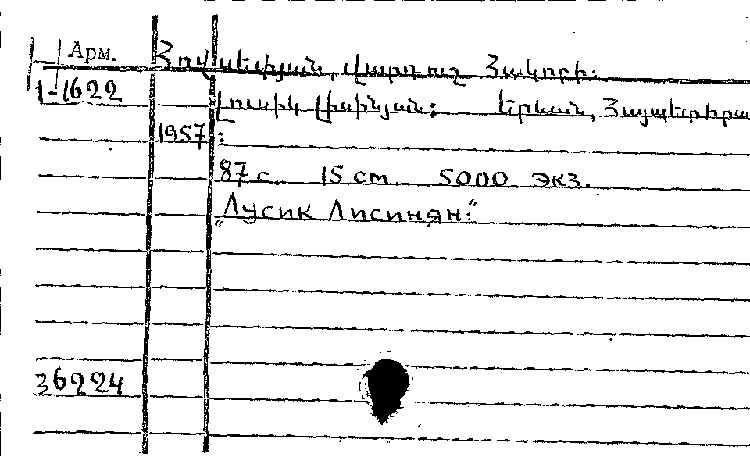 Арм. Հովսեփյան, Վարդուշ Հակոբի.
1-1622 Լուսիկ Լիսինյան: Երևան, Հայպետհրա
1957:
87 с. 15 cm 5000 экз.
"Лусик Лисинян."
36224